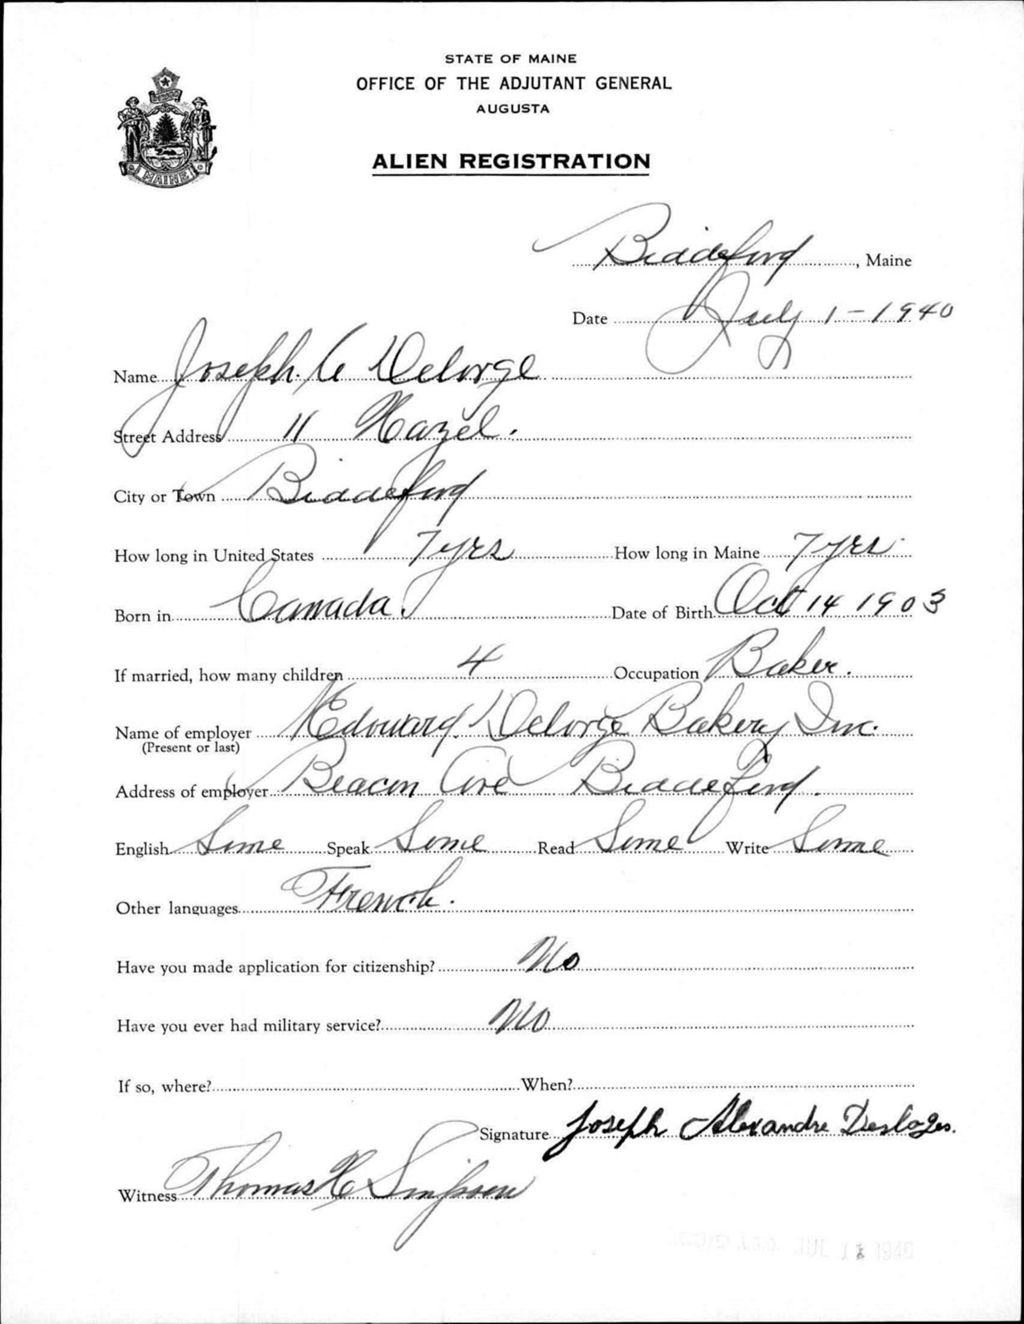 STATE OF MAINE
OFFICE OF THE ADJUTANT GENERAL
AUGUSTA
ALIEN REGISTRATION
MAINE
Biddeford, Maine
Date July 1-1940
Name Joseph. A Delorge
Street Address 11 Hazel.
City or Town Biddeford
How long in United States 7yrs How long in Maine 7yrs
Born in Canada. Date of Birth Oct 14 1903
If married, how many children 4 Occupation Baker.
Name of employer Edouard. Delorge Bakery Inc.
(Present or last)
Address of employer Beacon Ave Biddeford.
English Some Speak Some Read Some Write Some
Other languages French.
Have you made application for citizenship? No
Have you ever had military service? No
If so, where? When?
Signature Joseph Alexandre
Witness Thomas H Simpson
JUL 1940